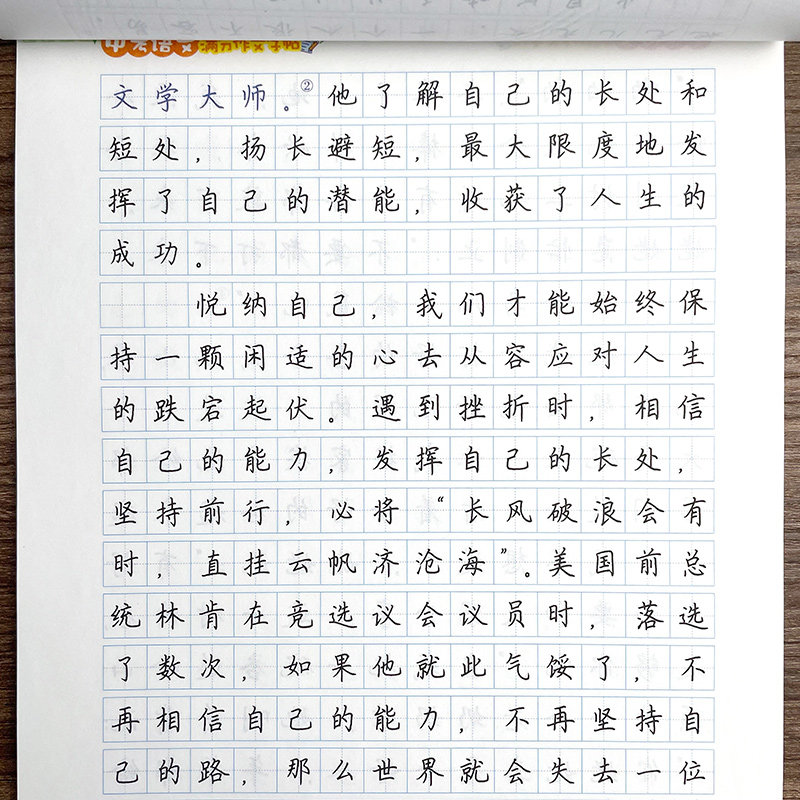 文学大师。②他了解自己的长处和
短处，扬长避短，最大限度地发
挥了自己的潜能，收获了人生的
成功。
悦纳自己，我们才能始终保
持一颗闲适的心去从容应对人生
的跌宕起伏。遇到挫折时，相信
自己的能力，发挥自己的长处，
坚持前行，必将“长风破浪会有
时，直挂云帆济沧海”。美国前总
统林肯在竞选议会议员时，落选
了数次，如果他就此气馁了，不
再相信自己的能力，不再坚持自
己的路，那么世界就会失去一位